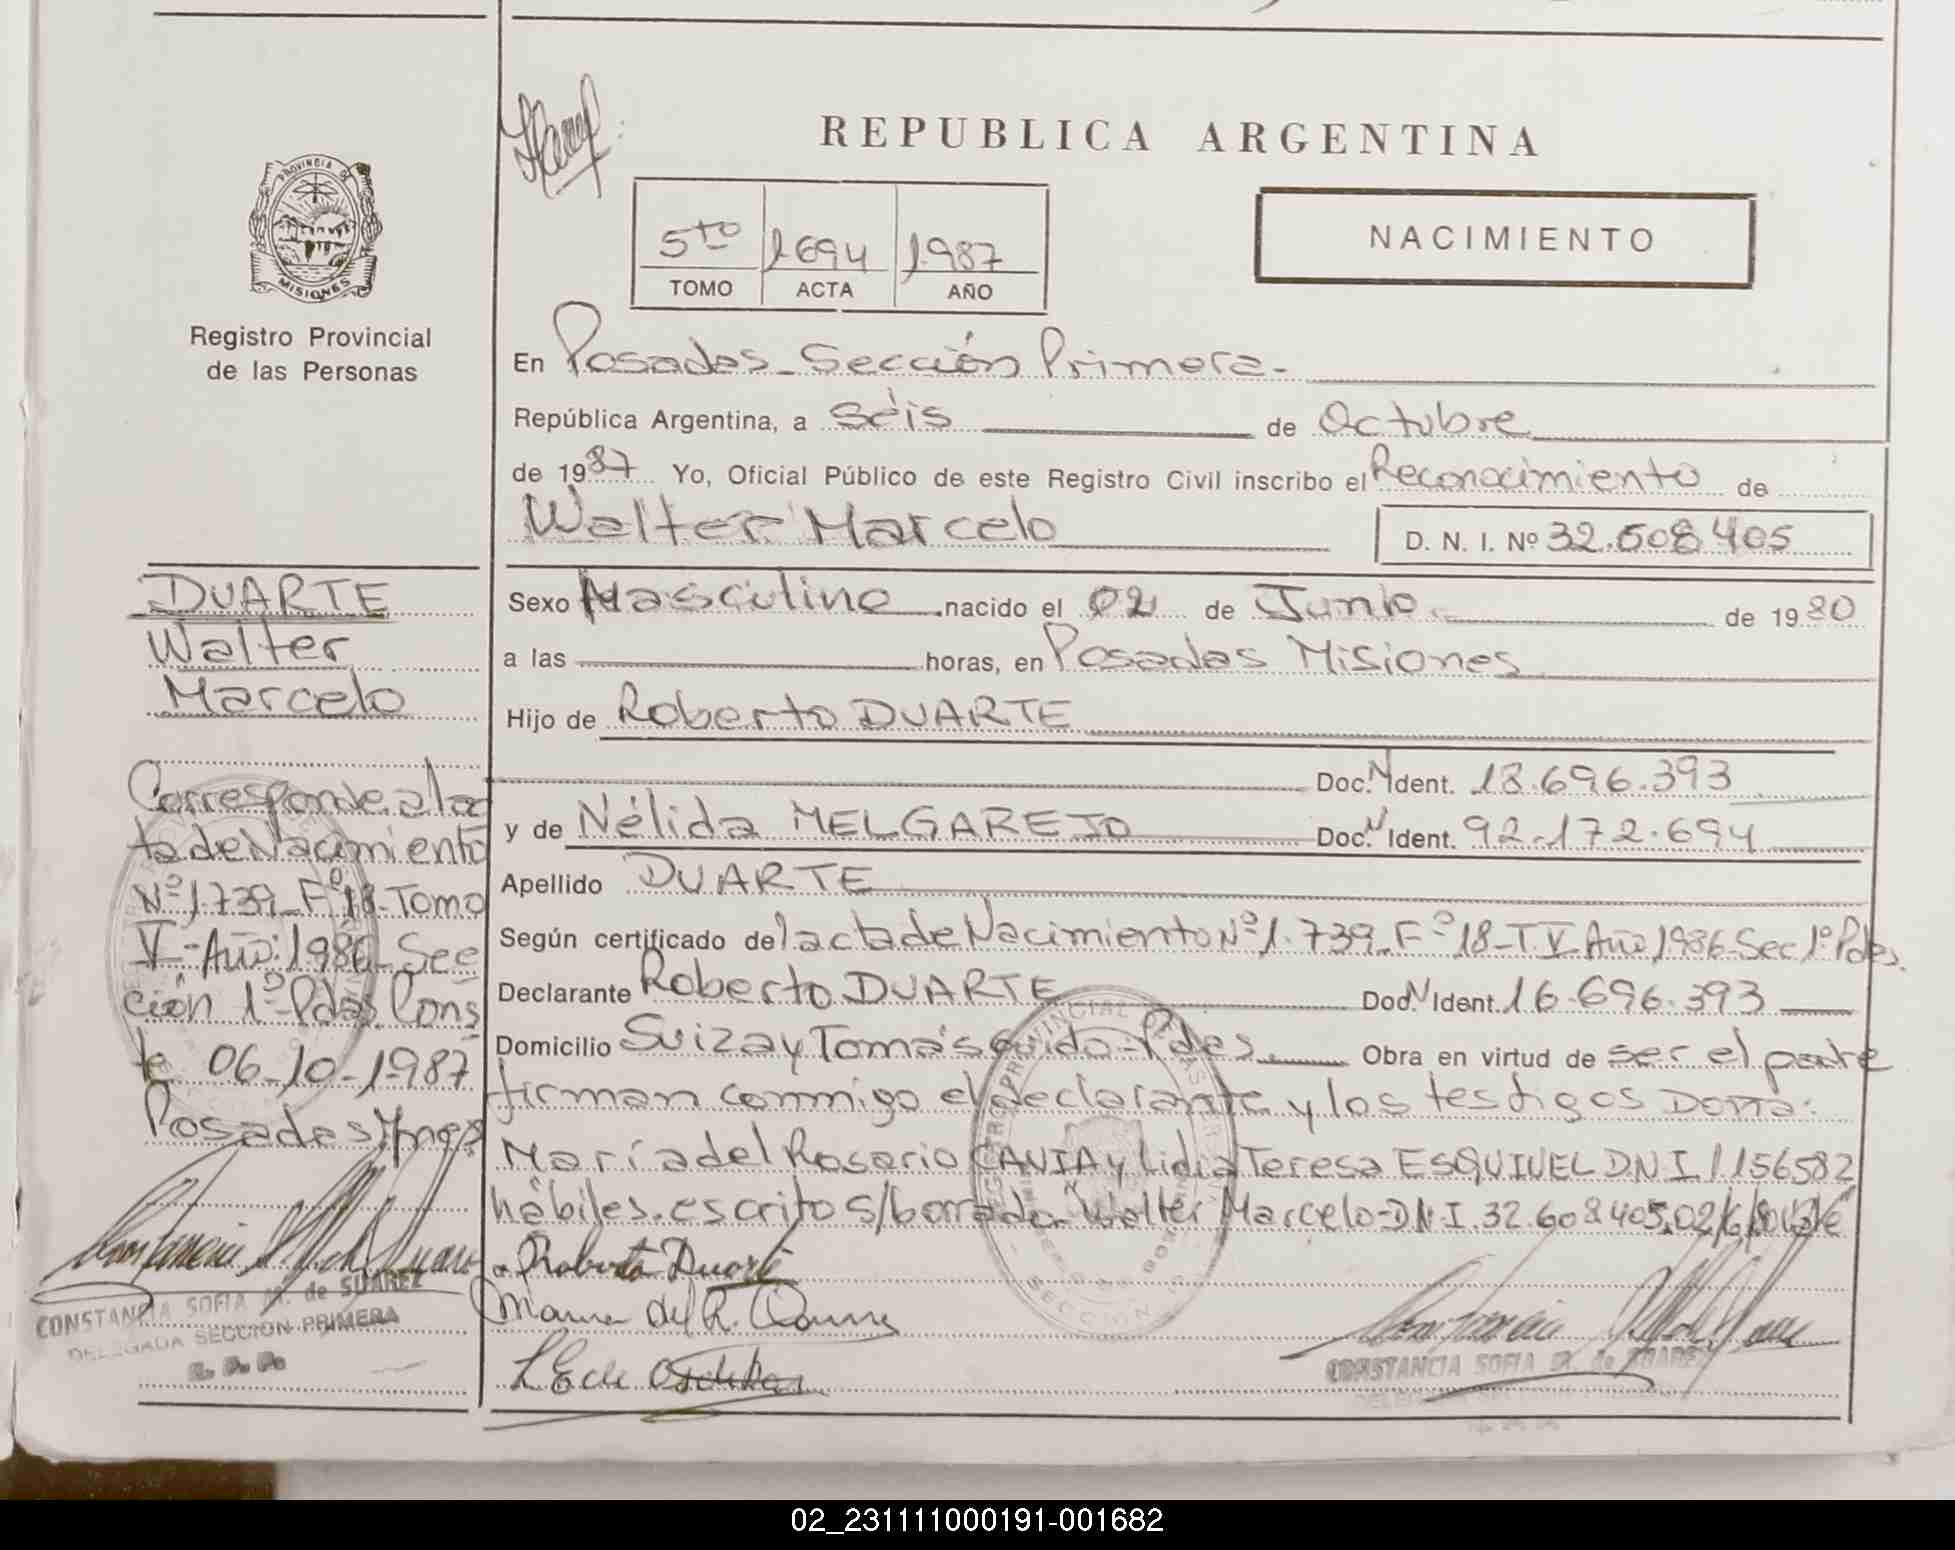 REPUBLICA ARGENTINA
PROVINCIA DE
MISIONES
Registro Provincial
de las Personas
5to 1694 1987
TOMO ACTA AÑO
NACIMIENTO
En Posadas - Sección Primera -
República Argentina, a Séis de Octubre
de 1987 Yo, Oficial Público de este Registro Civil inscribo el Reconocimiento de
Walter Marcelo D. N. I. Nº 32.608 405
Sexo Masculino nacido el 02 de Junio de 1980
a las horas, en Posadas Misiones
Hijo de Roberto DUARTE
Doc. N Ident. 18.696.393
y de Nélida MELGAREJO Doc. N Ident. 92.172.694
Apellido DUARTE
Según certificado del acta de Nacimiento Nº 1.739 - Fº 18 - T V Año 1986 - Sec 1º Pdas.
Declarante Roberto DUARTE Doc. N Ident. 16.696.393
Domicilio Suiza y Tomás Guido - Pdas. Obra en virtud de ser el padre
firman conmigo el declarante y los testigos Doña:
María del Rosario y Lidia Teresa ESQUIVEL D.N.I 1156582
hábiles. escrito s/borrado "Walter Marcelo - D.N.I. 32.608 405, 02/6/80
Roberto Duarte
DUARTE
Walter
Marcelo
Corresponde al ac
ta de Nacimiento
Nº 1.739 - Fº 18 - Tomo
V - Año: 1986 - Sec
ción 1º Pdas. Cons
te 06-10-1987
Posadas Mnes
CONSTANCIA SOFIA M. de SUAREZ
DELEGADA SECCION PRIMERA
R. P. P.
CONSTANCIA SOFIA M. de SUAREZ
02_231111000191-001682